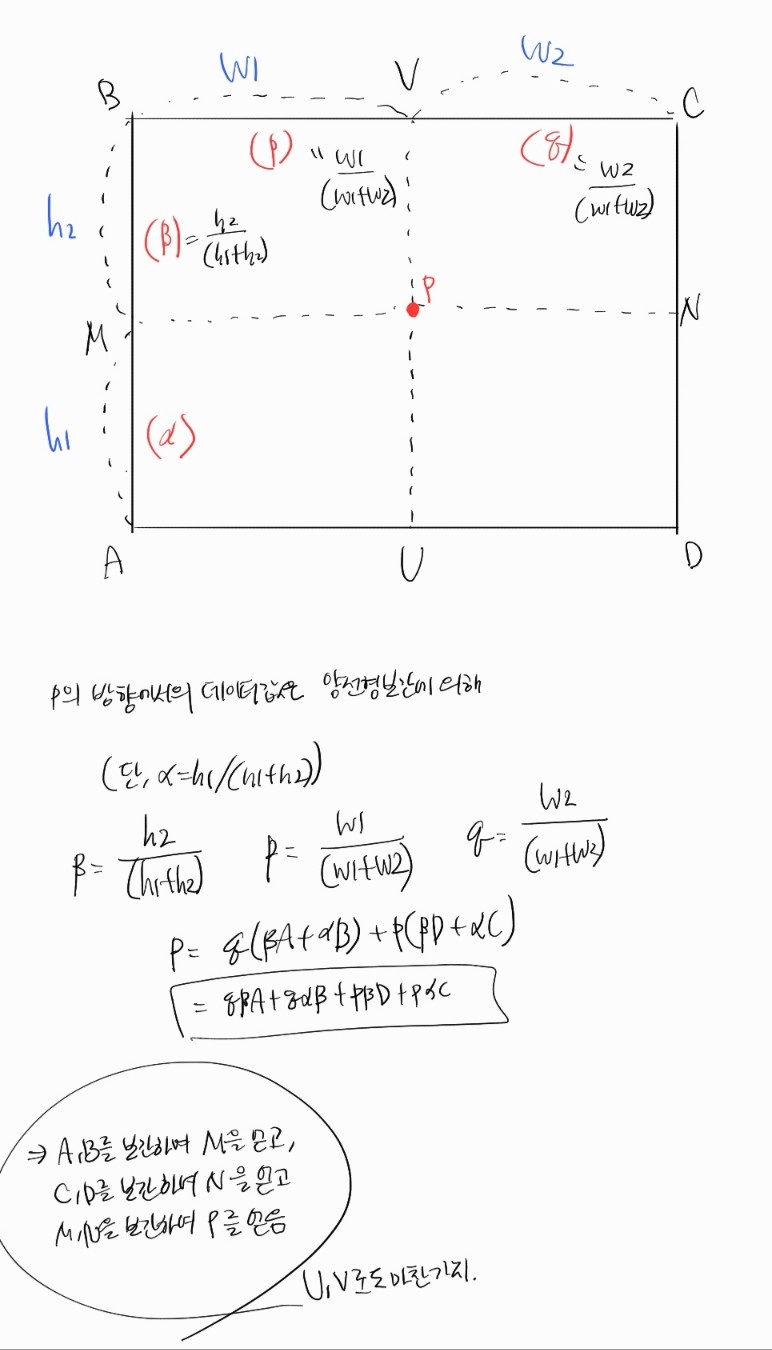 W1
W2
B
V
C
(p) = w1/(w1+w2)
(q) = w2/(w1+w2)
h2
(β) = h2/(h1+h2)
P
M
N
h1
(α)
A
U
D
P의 방향에서의 데이터값은 양선형보간에 의해
(단, α=h1/(h1+h2))
β = h2/(h1+h2) p = w1/(w1+w2) q = w2/(w1+w2)
P = q(βA+αB)+p(βD+αC)
= qβA+qαB+pβD+pαC
⇒ A,B를 보간하여 M을 얻고,
C,D를 보간하여 N을 얻고
M,N을 보간하여 P를 얻음
U,V로도 마찬가지.